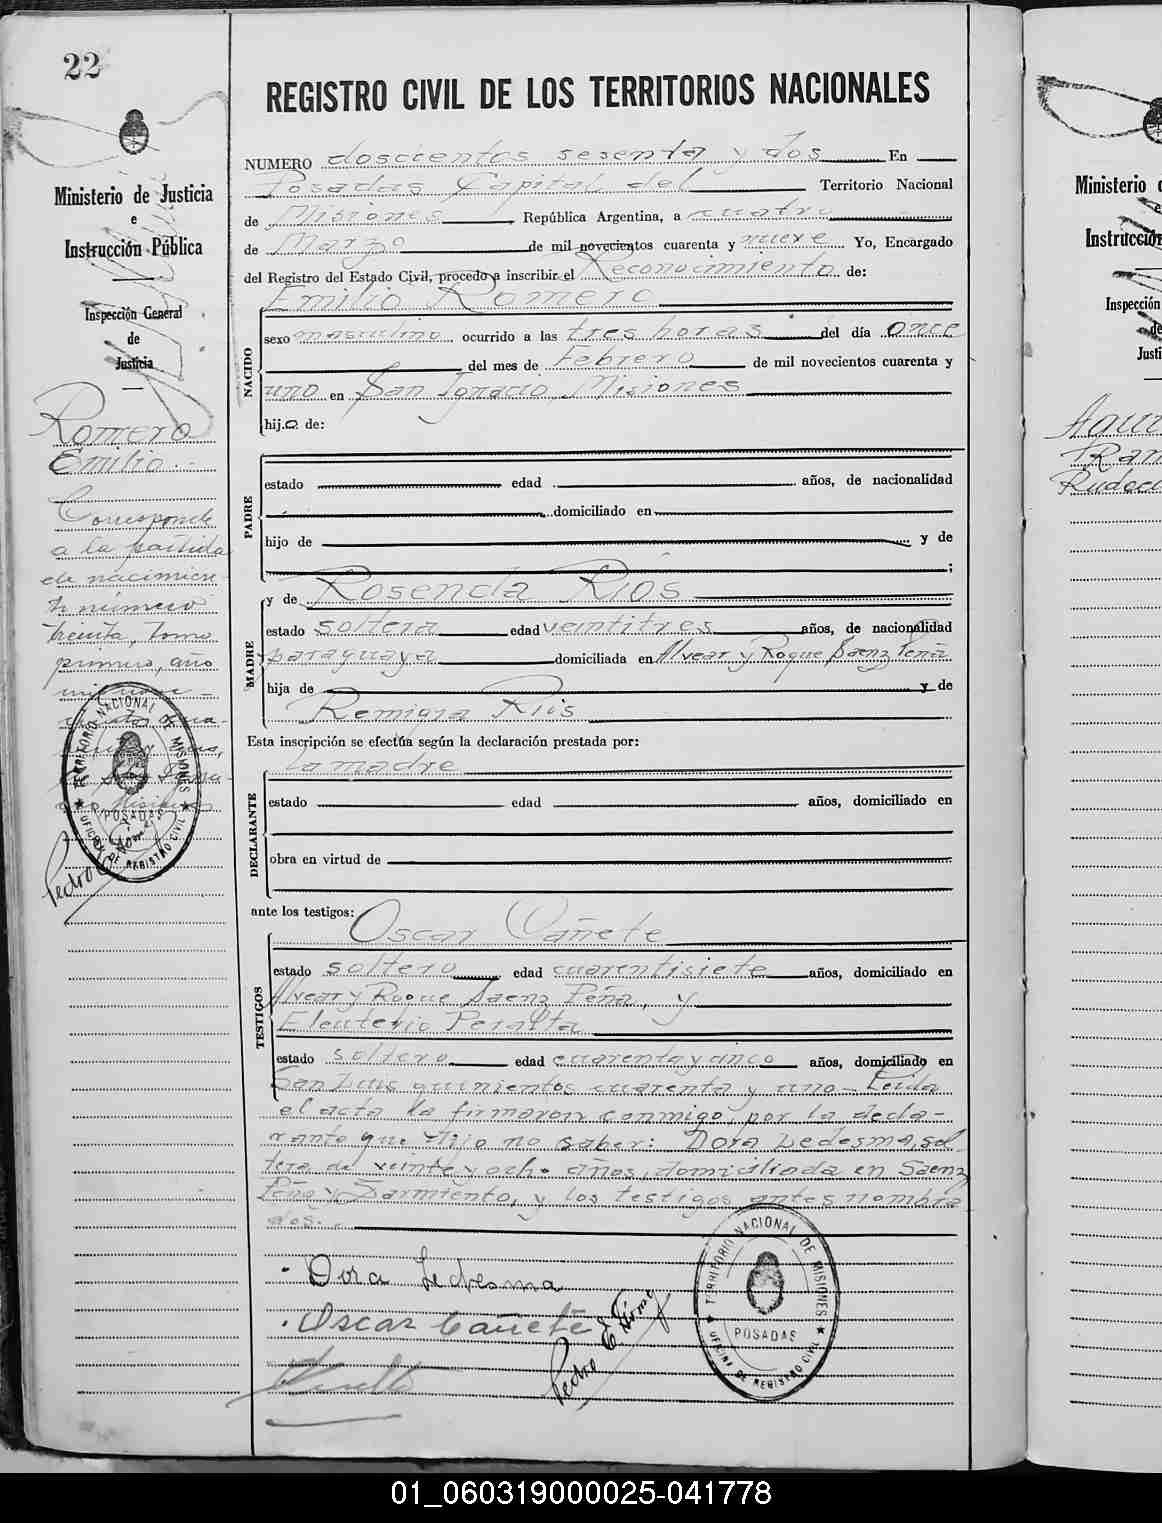 22
REGISTRO CIVIL DE LOS TERRITORIOS NACIONALES
Ministerio de Justicia
e
Instrucción Pública
Inspección General
de
Justicia
Romero
Emilio.-
Corresponde
a la partida
de nacimien-
to número
treinta, tomo
primero, año
mil nove-
cientos cua-
NUMERO doscientos sesenta y dos En
Posadas Capital del Territorio Nacional
de Misiones República Argentina, a cuatro
de Marzo de mil novecientos cuarenta y nueve Yo, Encargado
del Registro del Estado Civil, procedo a inscribir el Reconocimiento de:
Emilio Romero
NACIDO
sexo masculino ocurrido a las tres horas del día once
del mes de Febrero de mil novecientos cuarenta y
uno en San Ignacio, Misiones
hijo de:
PADRE
estado edad años, de nacionalidad
domiciliado en
hijo de y de
;
MADRE
y de Rosenda Ríos
estado soltera edad veintitres años, de nacionalidad
paraguaya domiciliada en Alvear y Roque Saenz Peña
hija de y de
Remigia Ríis
Esta inscripción se efectúa según la declaración prestada por:
la madre
DECLARANTE
estado edad años, domiciliado en
obra en virtud de
ante los testigos:
Oscar Cañete
TESTIGOS
estado soltero edad cuarentisiete años, domiciliado en
Alvear y Roque Saenz Peña, y
Eleuterio Peralta
estado soltero edad cuarenta y cinco años, domiciliado en
San Luis quinientos cuarenta y uno - Leida
el acta la firmaron conmigo, por la decla-
rante que dijo no saber: Dora Ledesma, sol
tera de veinte y ocho años, domiciliada en Saenz
Peña y Sarmiento, y los testigos antes nombra
dos.-
Dora Ledesma
Oscar Cañete
Pedro E
TERRITORIO NACIONAL DE MISIONES
POSADAS
OFICINA DE REGISTRO CIVIL
TERRITORIO NACIONAL DE MISIONES
POSADAS
OFICINA DE REGISTRO CIVIL
Pedro
Ministerio
Instrucción
Inspección
de
Justi
Rudeci
01_060319000025-041778